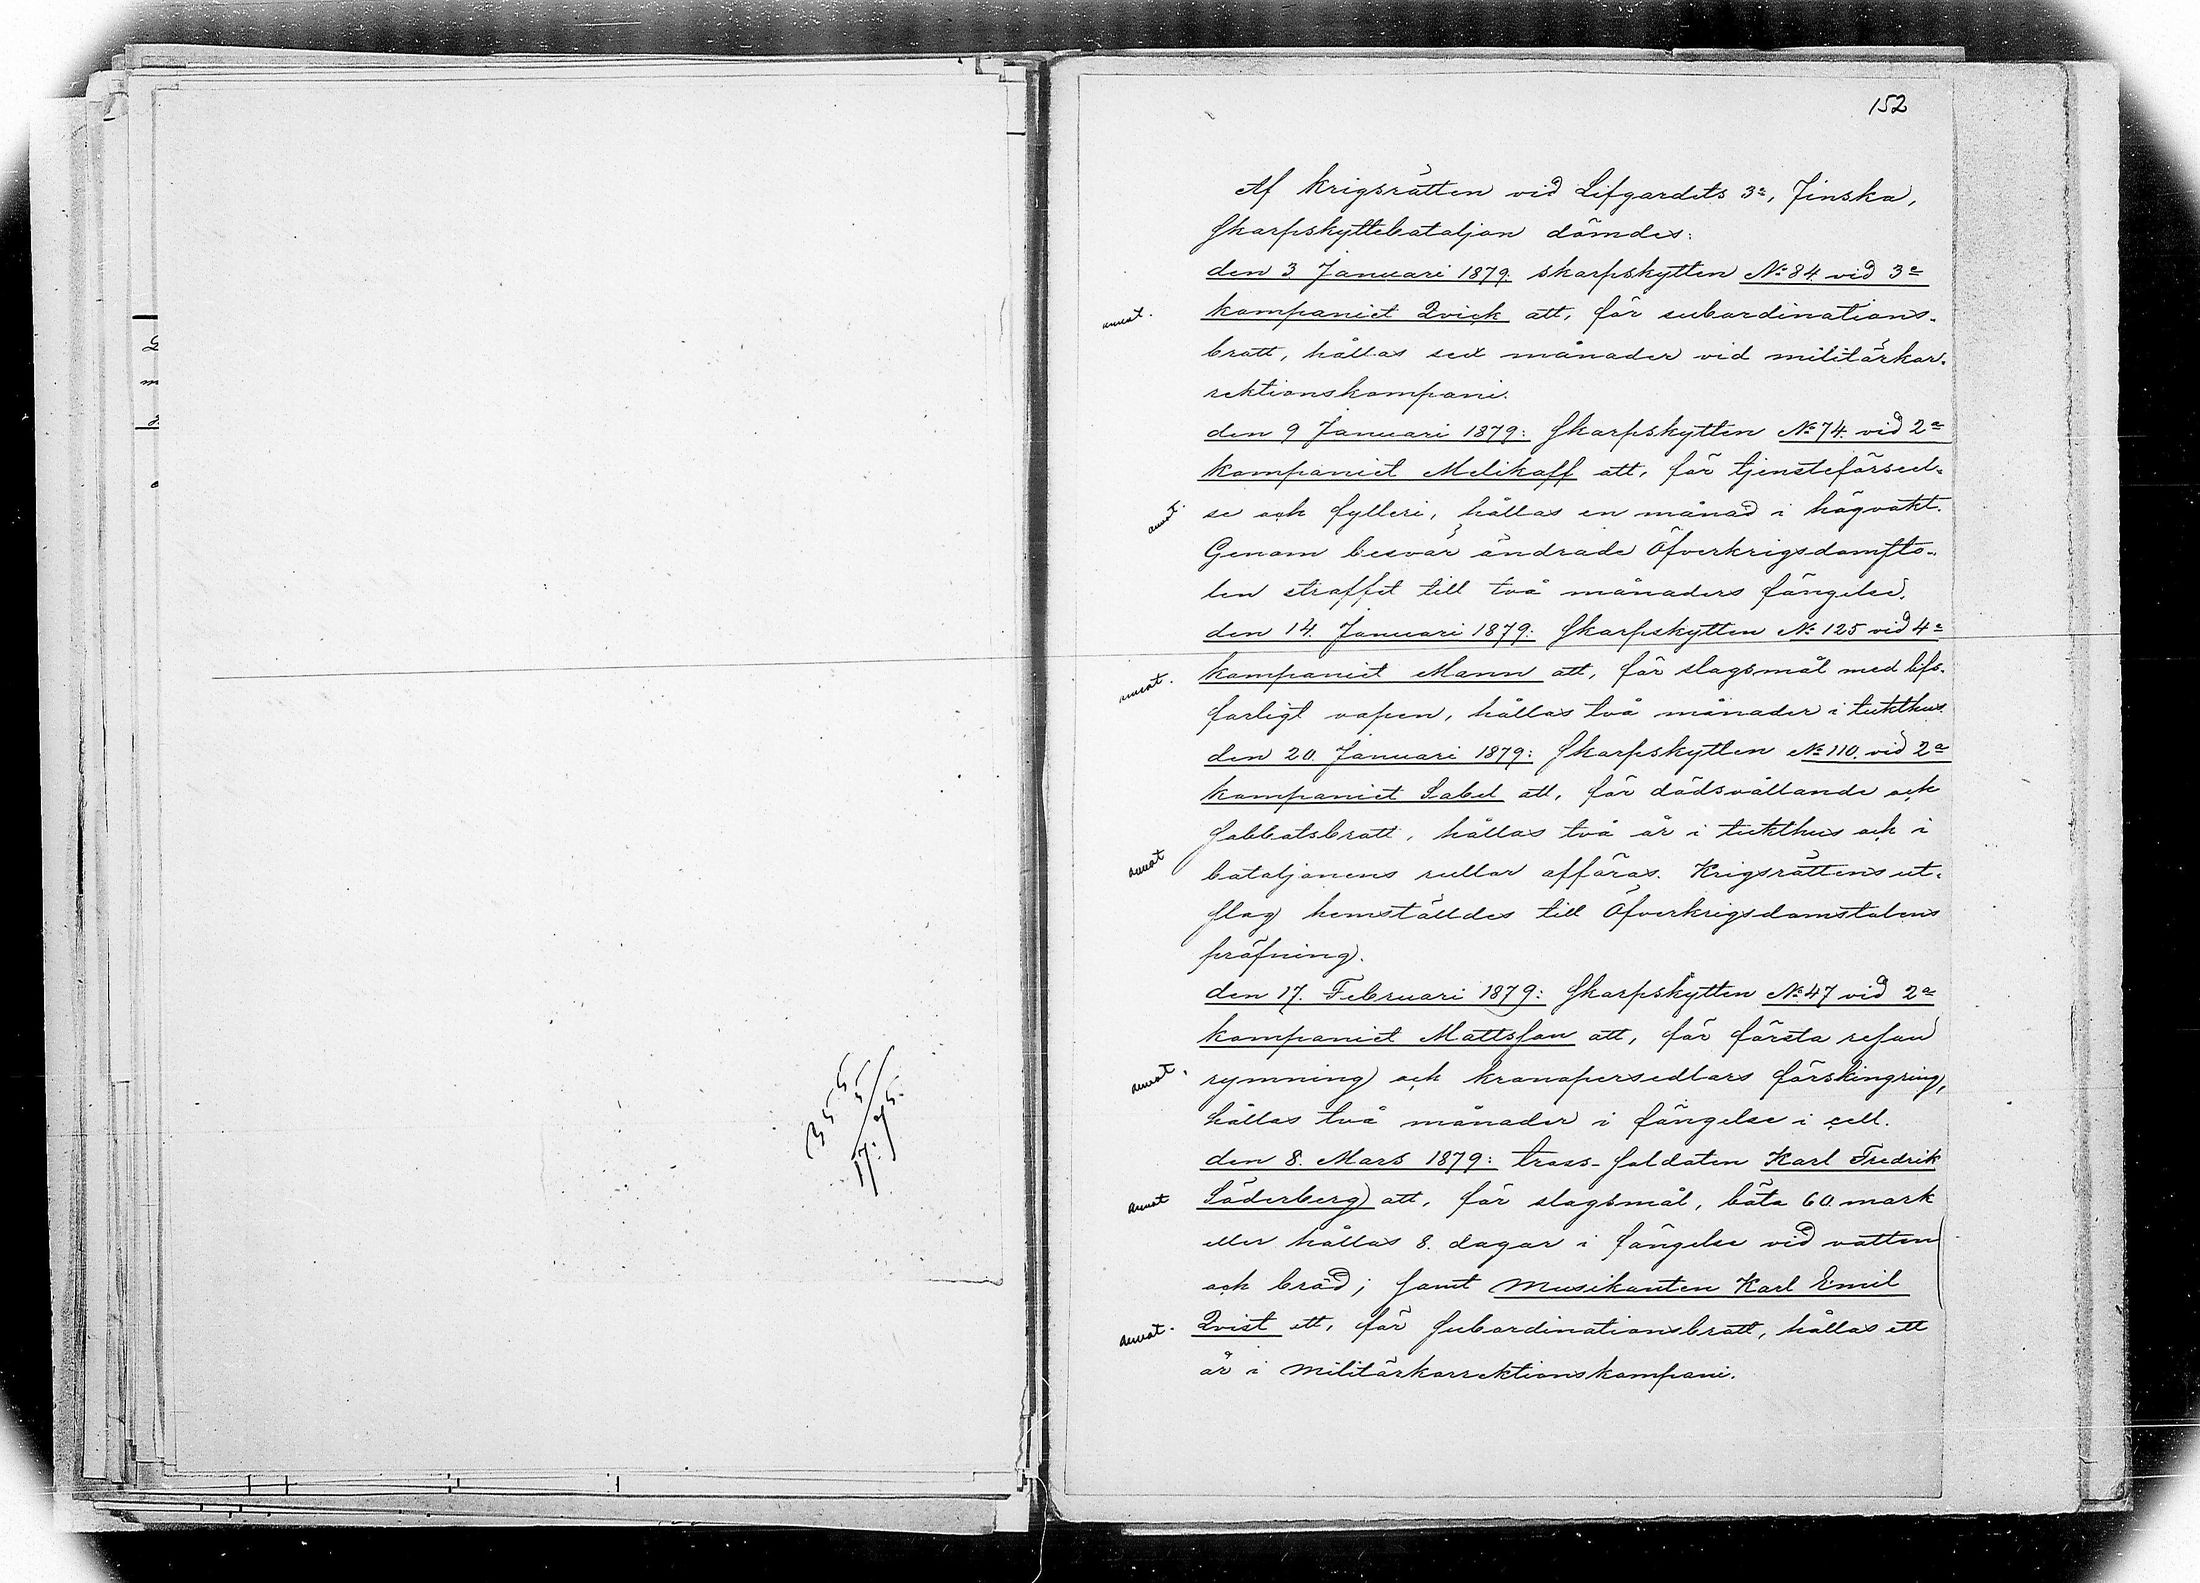 152
Af Krigsrätten vid Lifgardets 3e, Finska,
Skarpskyttebataljon dömdes:
den 3 Januari 1879. skarpskytten No 84 vid 3e
kompaniet Qvick att, för subordinations-
brott, hållas sex månader vid militärkor-
rektionskompani.
den 9 Januari 1879: Skarpskytten No 74. vid 2a
kompaniet Melikoff att, för tjensteförseel-
se och fylleri, hållas en månad i högvakt.
Genom besvär ändrade Öfverkrigsdomsto-
len straffet till två månaders fängelse.
den 14. Januari 1879: Skarpskytten No 125 vid 4e
kompaniet Mann att, för slagsmål med lifs-
farligt vapen, hållas två månader i tukthus.
den 20. Januari 1879: Skarpskytten No 110. vid 2a
kompaniet Sabel att, för dödsvållande och
Sabbatsbrott, hållas två år i tukthus och i
bataljonens rullor afföras. Krigsrättens ut-
slag hemställdes till Öfverkrigsdomstolens
pröfning.
den 17. Februari 1879: Skarpskytten No 47 vid 2a
kompaniet Mattsson att, för första resan
rymning och kronopersedlars förskingring,
hållas två månader i fängelse i cell.
den 8. Mars 1879: tross-Soldaten Karl Fredrik
Söderberg att, för slagsmål, böta 60 mark
eller hållas 8. dagar i fängelse vid vatten
och bröd; samt Musikanten Karl Emil
Qvist att, för Subordinationsbrott, hållas ett
år i Militärkorrektionskompani.